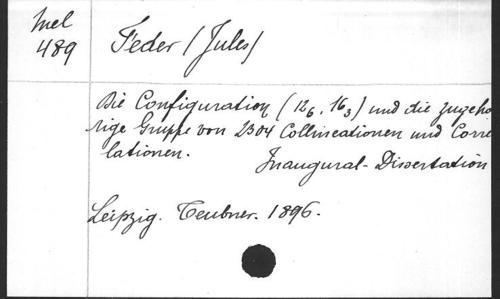 Mel
489
Feder (Jules)
Die Configuration (12₆, 16₃) und die zugehö
rige Gruppe von 2304 Collineationen und Corre
lationen.
Inaugural-Dissertation
Leipzig. Teubner. 1896.